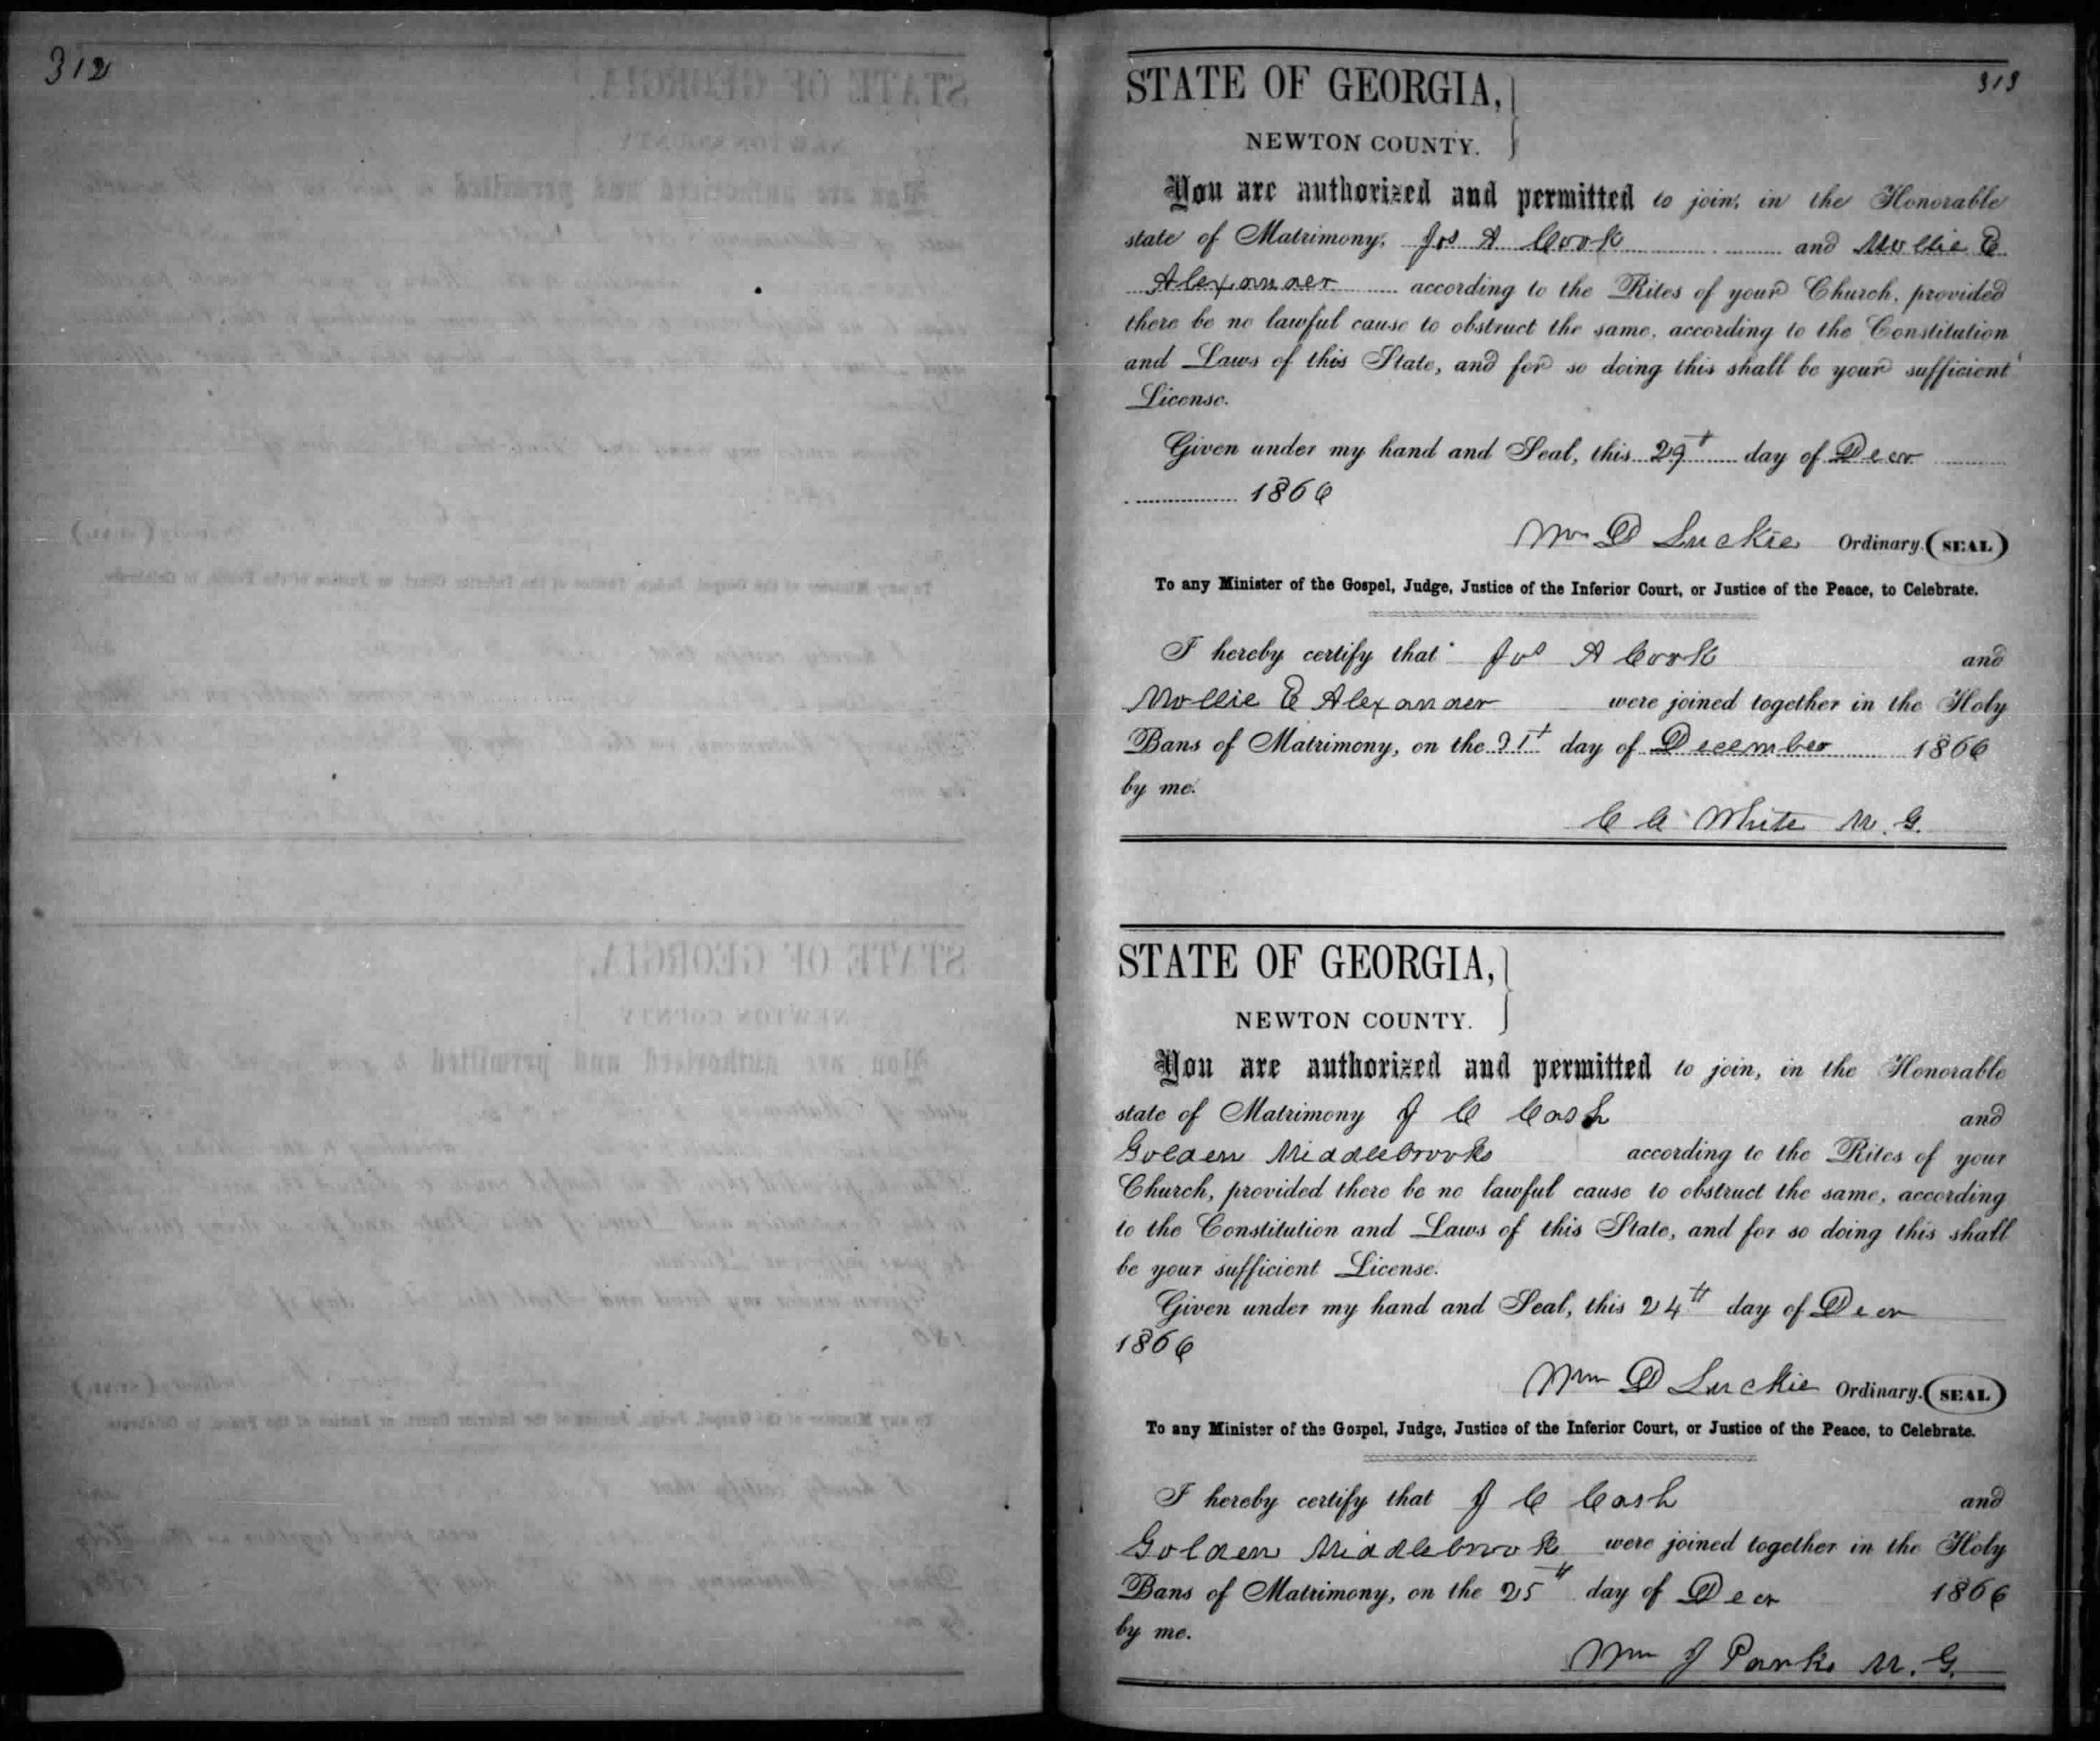 312
313
STATE OF GEORGIA,
NEWTON COUNTY.
You are authorized and permitted to join, in the Honorable
state of Matrimony, Jos A Cook and Mollie E
Alexander according to the Rites of your Church, provided
there be no lawful cause to obstruct the same, according to the Constitution
and Laws of this State, and for so doing this shall be your sufficient
License.
Given under my hand and Seal, this 29t day of Decr
1866
Wm D Luckie Ordinary. (SEAL)
To any Minister of the Gospel, Judge, Justice of the Inferior Court, or Justice of the Peace, to Celebrate.
I hereby certify that Jos A Cook and
Mollie E Alexander were joined together in the Holy
Bans of Matrimony, on the 31t day of December 1866
by me.
C A White M. G.
STATE OF GEORGIA,
NEWTON COUNTY.
You are authorized and permitted to join, in the Honorable
state of Matrimony J C Cash and
Golden Middlebrooks according to the Rites of your
Church, provided there be no lawful cause to obstruct the same, according
to the Constitution and Laws of this State, and for so doing this shall
be your sufficient License.
Given under my hand and Seal, this 24th day of Decr
1866
Wm D Luckie Ordinary. (SEAL)
To any Minister of the Gospel, Judge, Justice of the Inferior Court, or Justice of the Peace, to Celebrate.
I hereby certify that J C Cash and
Golden Middlebrook were joined together in the Holy
Bans of Matrimony, on the 25th day of Decr 1866
by me.
Wm J Parks M. G.